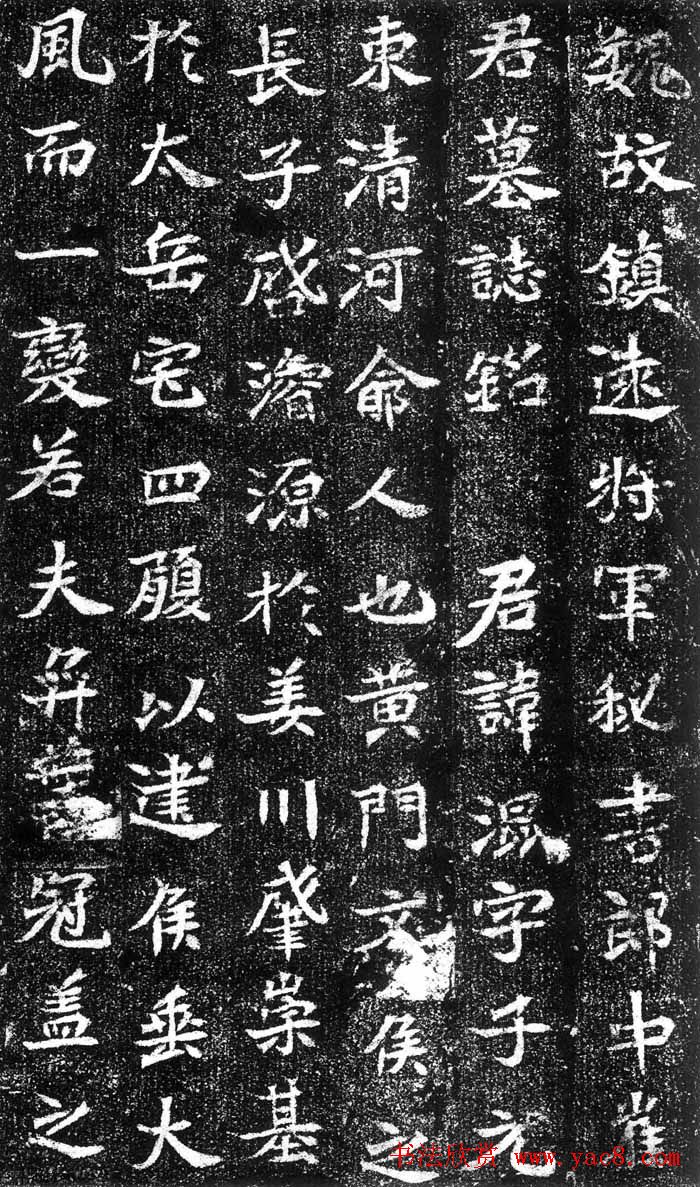 魏故鎮遠將軍秘書郎中崔
君墓誌銘 君諱混字子元
東清河俞人也黃門文侯之
長子啓濬源於姜川肇崇基
於太岳宅四履以建侯垂大
風而一變若夫弈冠盖之
书法欣赏 www.yac8.com